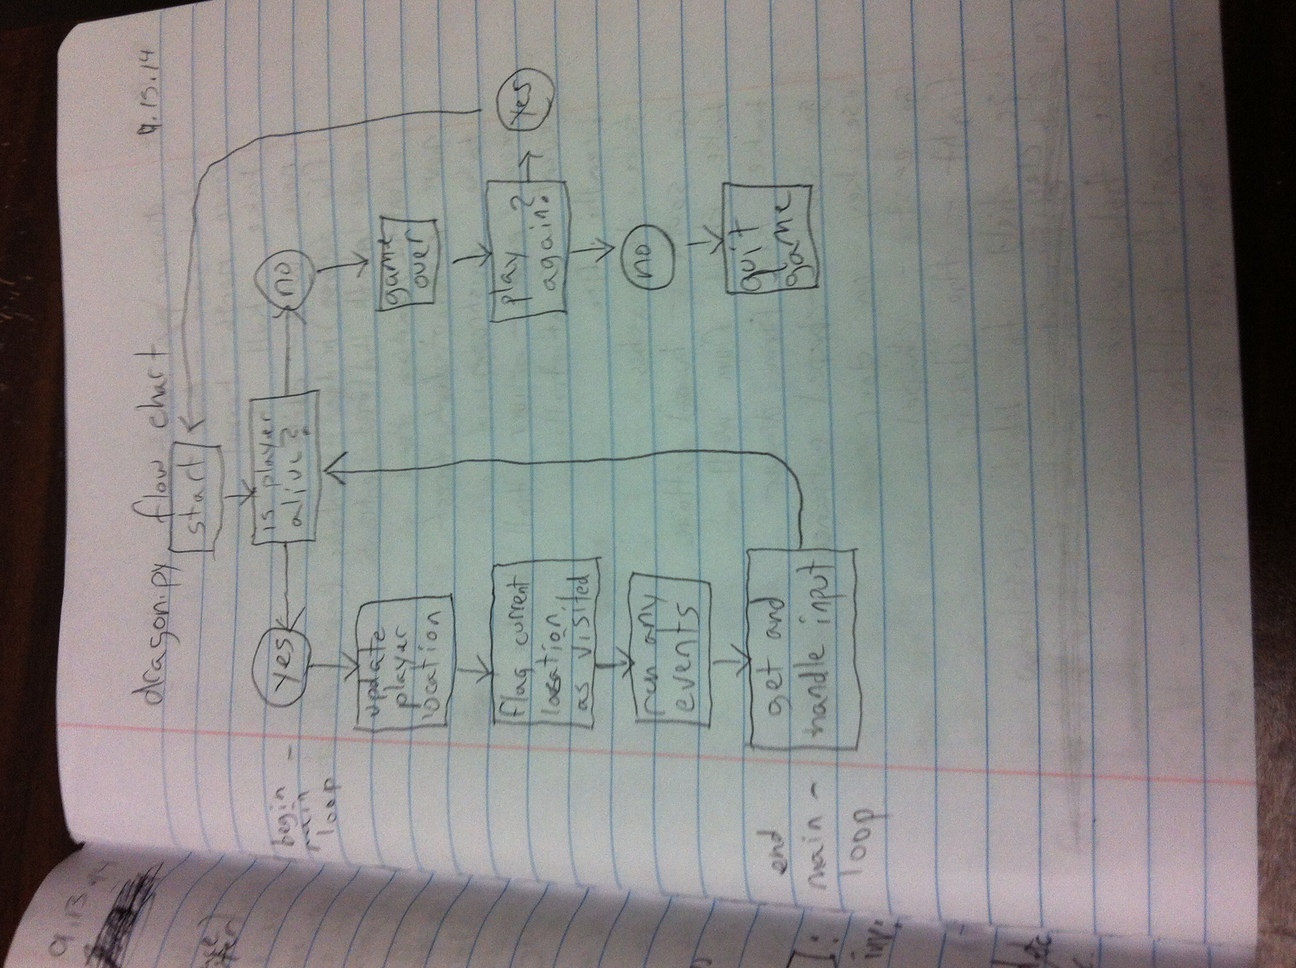 9.13.14
dragon.py flow chart
9.13.14
start
is player
alive?
yes
no
begin
main
loop
update
player
location
flag current
location
as visited
run any
events
get and
handle input
end
main
loop
game
over
play
again?
yes
no
quit
game
I:
inv: